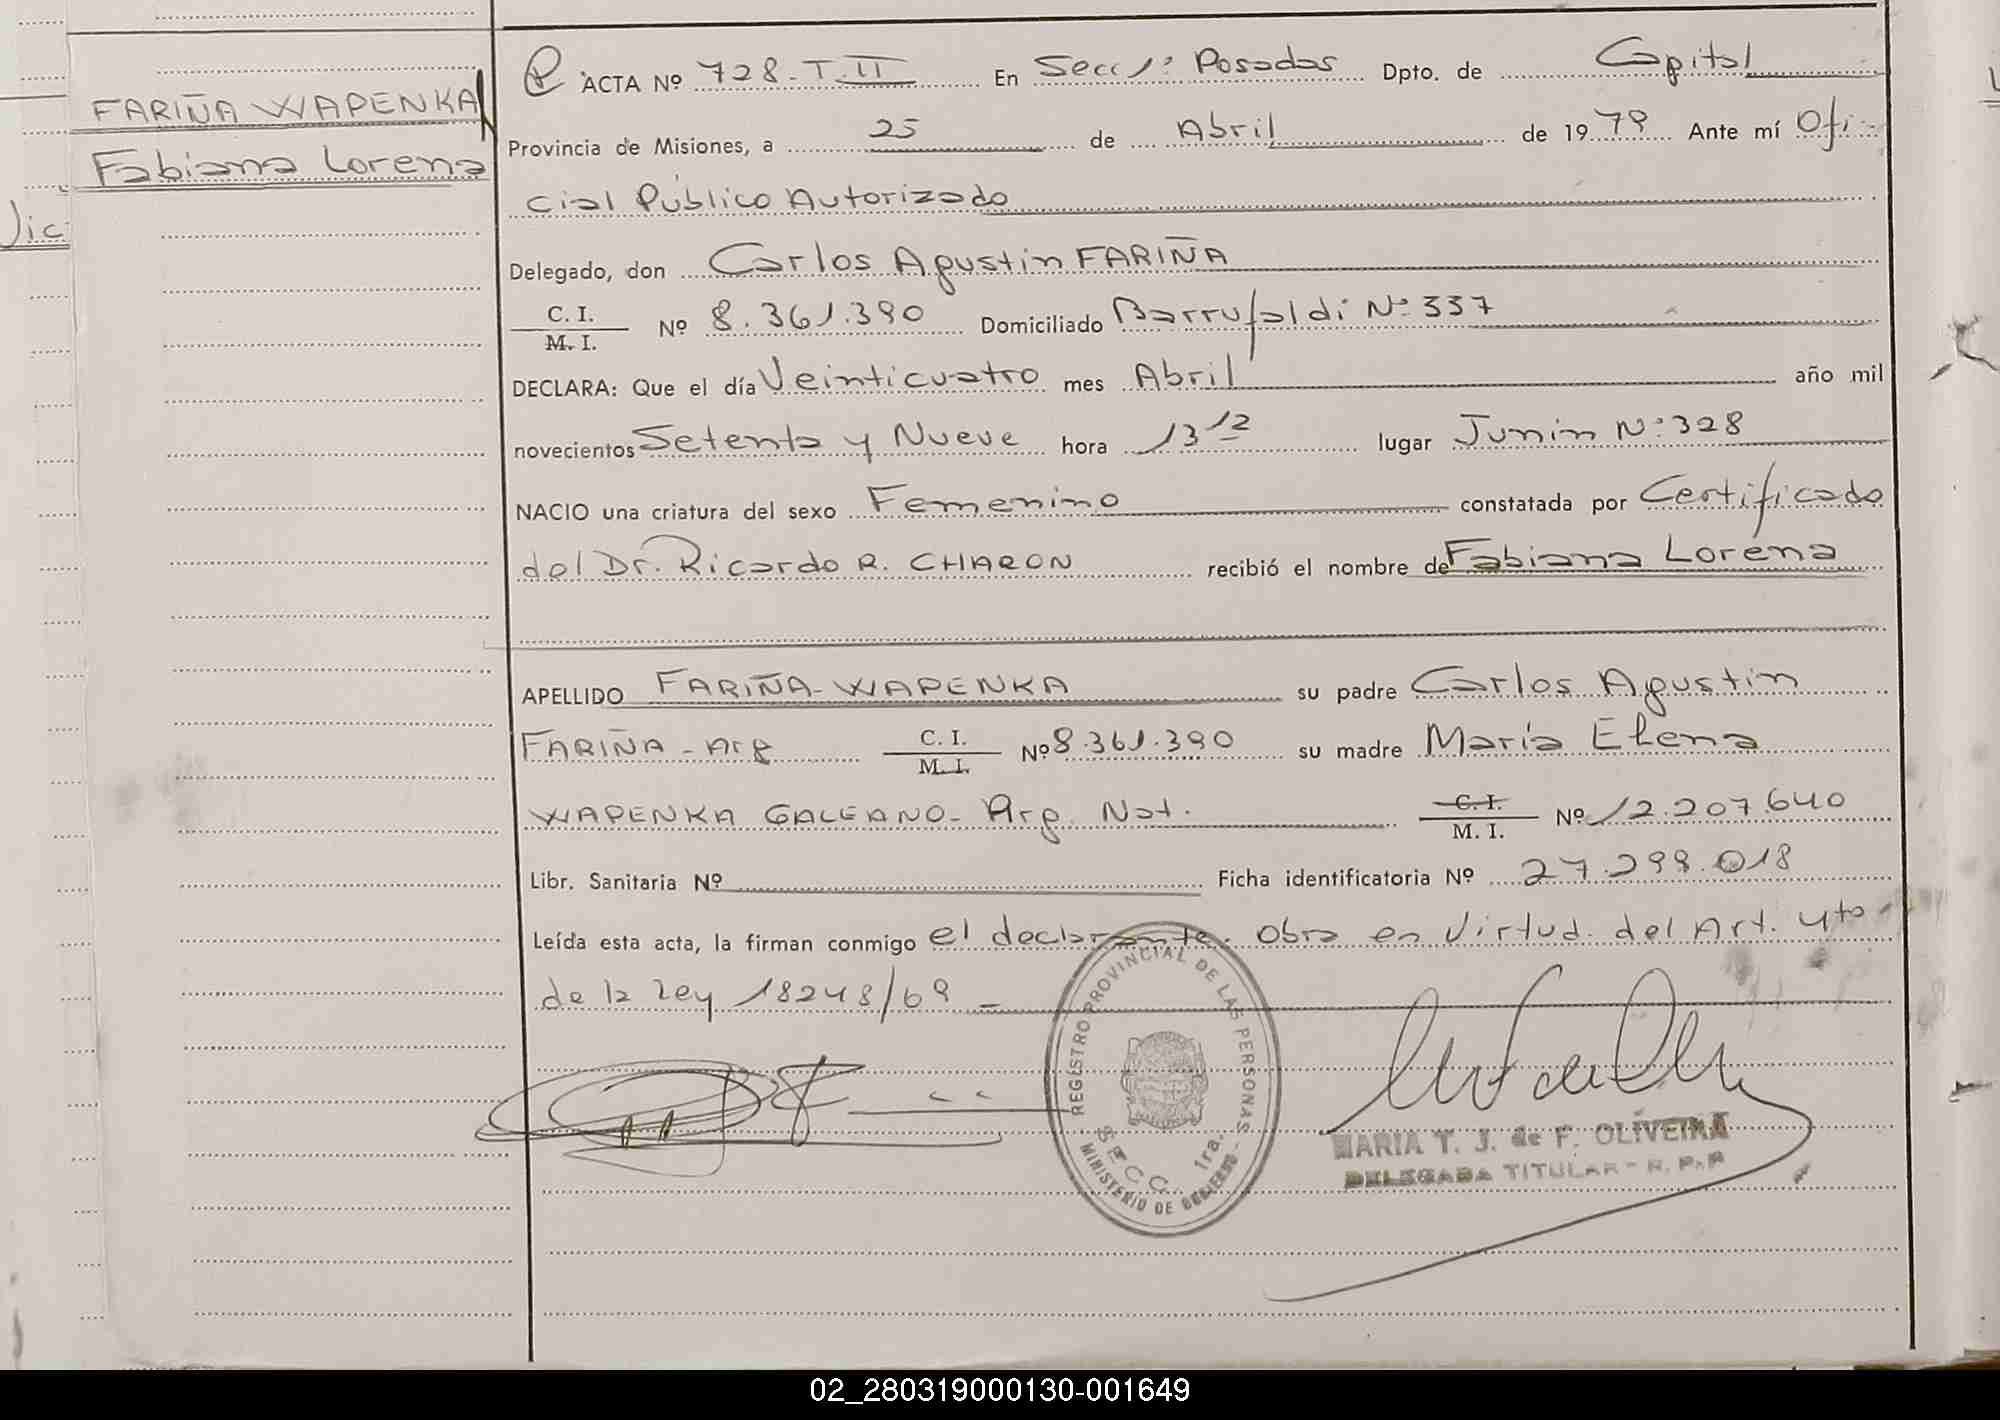 FARIÑA WAPENKA
Fabiana Lorena
ACTA Nº 728-T.II En Secc 1ª Posadas Dpto. de Capital
Provincia de Misiones, a 25 de Abril de 1979 Ante mí Ofi-
cial Público Autorizado
Delegado, don Carlos Agustin FARIÑA
C. I.
M. I.
Nº 8.361.390 Domiciliado Barrufaldi Nº 337
DECLARA: Que el día Veinticuatro mes Abril año mil
novecientos Setenta y Nueve hora 13 12 lugar Junin Nº 328
NACIO una criatura del sexo Femenino constatada por Certificado
del Dr. Ricardo R. CHARON recibió el nombre de Fabiana Lorena
APELLIDO FARIÑA-WAPENKA su padre Carlos Agustin
FARIÑA - Arg C. I. M. I. Nº 8.361.390 su madre María Elena
WAPENKA GALEANO- Arg. Nat. C. I. M. I. Nº 12.207.640
Libr. Sanitaria Nº Ficha identificatoria Nº 27.299.018
Leída esta acta, la firman conmigo el declarante. Obra en virtud del Art. 4to
de la Ley 18248/69 -
REGISTRO PROVINCIAL DE LAS PERSONAS
SECC. 1ra.
MINISTERIO DE GOBIERNO
MARIA T. J. de F. OLIVEIRA
DELEGADA TITULAR - R. P. P
02_280319000130-001649